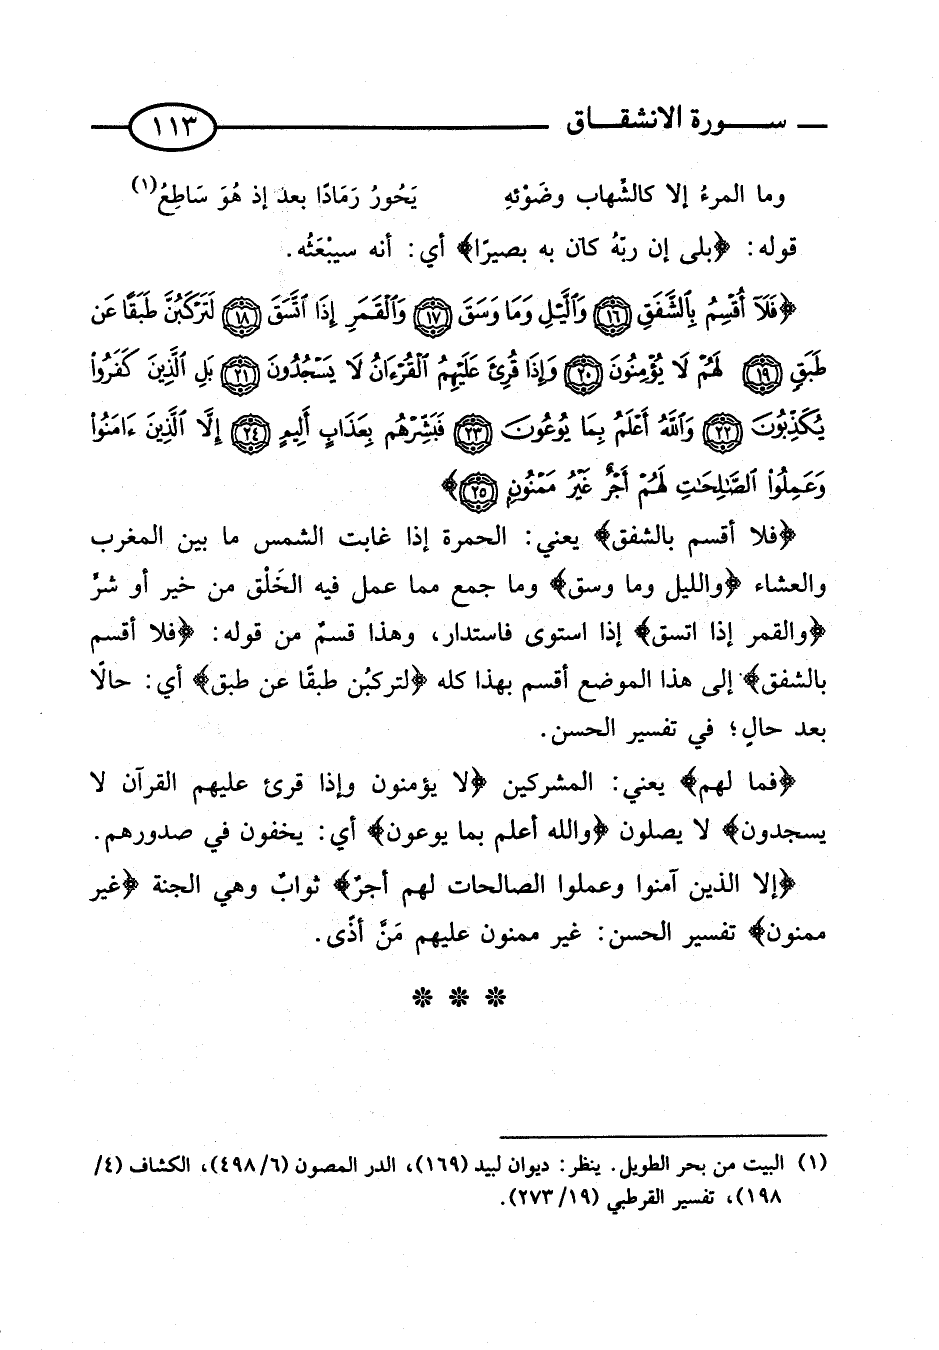 سورة الانشقاق ١١٣
وما المرءُ إلا كالشِّهاب وضَوْئِهِ يَحُورُ رَمَادًا بعد إذ هُوَ سَاطِعُ(١)
قوله: ﴿بلى إن ربّهُ كان به بصيرًا﴾ أي: أنه سيبْعَثُه.
﴿فَلَآ أُقْسِمُ بِٱلشَّفَقِ ١٦ وَٱلَّيْلِ وَمَا وَسَقَ ١٧ وَٱلْقَمَرِ إِذَا ٱتَّسَقَ ١٨ لَتَرْكَبُنَّ طَبَقًا عَن
طَبَقٍ ١٩ لَهُمْ لَا يُؤْمِنُونَ ٢٠ وَإِذَا قُرِئَ عَلَيْهِمُ ٱلْقُرْءَانُ لَا يَسْجُدُونَ ٢١ بَلِ ٱلَّذِينَ كَفَرُوا۟
يُكَذِّبُونَ ٢٢ وَٱللَّهُ أَعْلَمُ بِمَا يُوعُونَ ٢٣ فَبَشِّرْهُم بِعَذَابٍ أَلِيمٍ ٢٤ إِلَّا ٱلَّذِينَ ءَامَنُوا۟
وَعَمِلُوا۟ ٱلصَّٰلِحَٰتِ لَهُمْ أَجْرٌ غَيْرُ مَمْنُونٍ ٢٥﴾
﴿فلا أقسم بالشفق﴾ يعني: الحمرة إذا غابت الشمس ما بين المغرب
والعشاء ﴿والليل وما وسق﴾ وما جمع مما عمل فيه الخَلْق من خير أو شرٍّ
﴿والقمر إذا اتسق﴾ إذا استوى فاستدار، وهذا قسمٌ من قوله: ﴿فلا أقسم
بالشفق﴾ إلى هذا الموضع أقسم بهذا كله ﴿لتركبُن طبقًا عن طبق﴾ أي: حالًا
بعد حالٍ؛ في تفسير الحسن.
﴿فما لهم﴾ يعني: المشركين ﴿لا يؤمنون وإذا قرئ عليهم القرآن لا
يسجدون﴾ لا يصلون ﴿والله أعلم بما يوعون﴾ أي: يخفون في صدورهم.
﴿إلا الذين آمنوا وعملوا الصالحات لهم أجرٌ﴾ ثوابٌ وهي الجنة ﴿غير
ممنون﴾ تفسير الحسن: غير ممنون عليهم مَنَّ أذًى.
(١) البيت من بحر الطويل. ينظر: ديوان لبيد (١٦٩)، الدر المصون (٤٩٨/٦)، الكشاف (٤/
١٩٨)، تفسير القرطبي (٢٧٣/١٩).